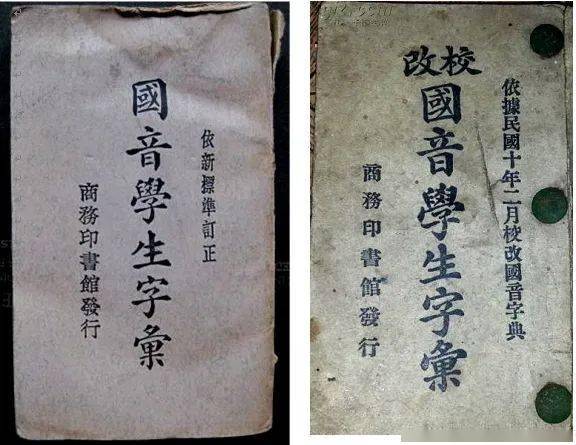 依新標準訂正
國音學生字彙
商務印書館發行
校改
依據民國十年二月校改國音字典
國音學生字彙
商務印書館發行